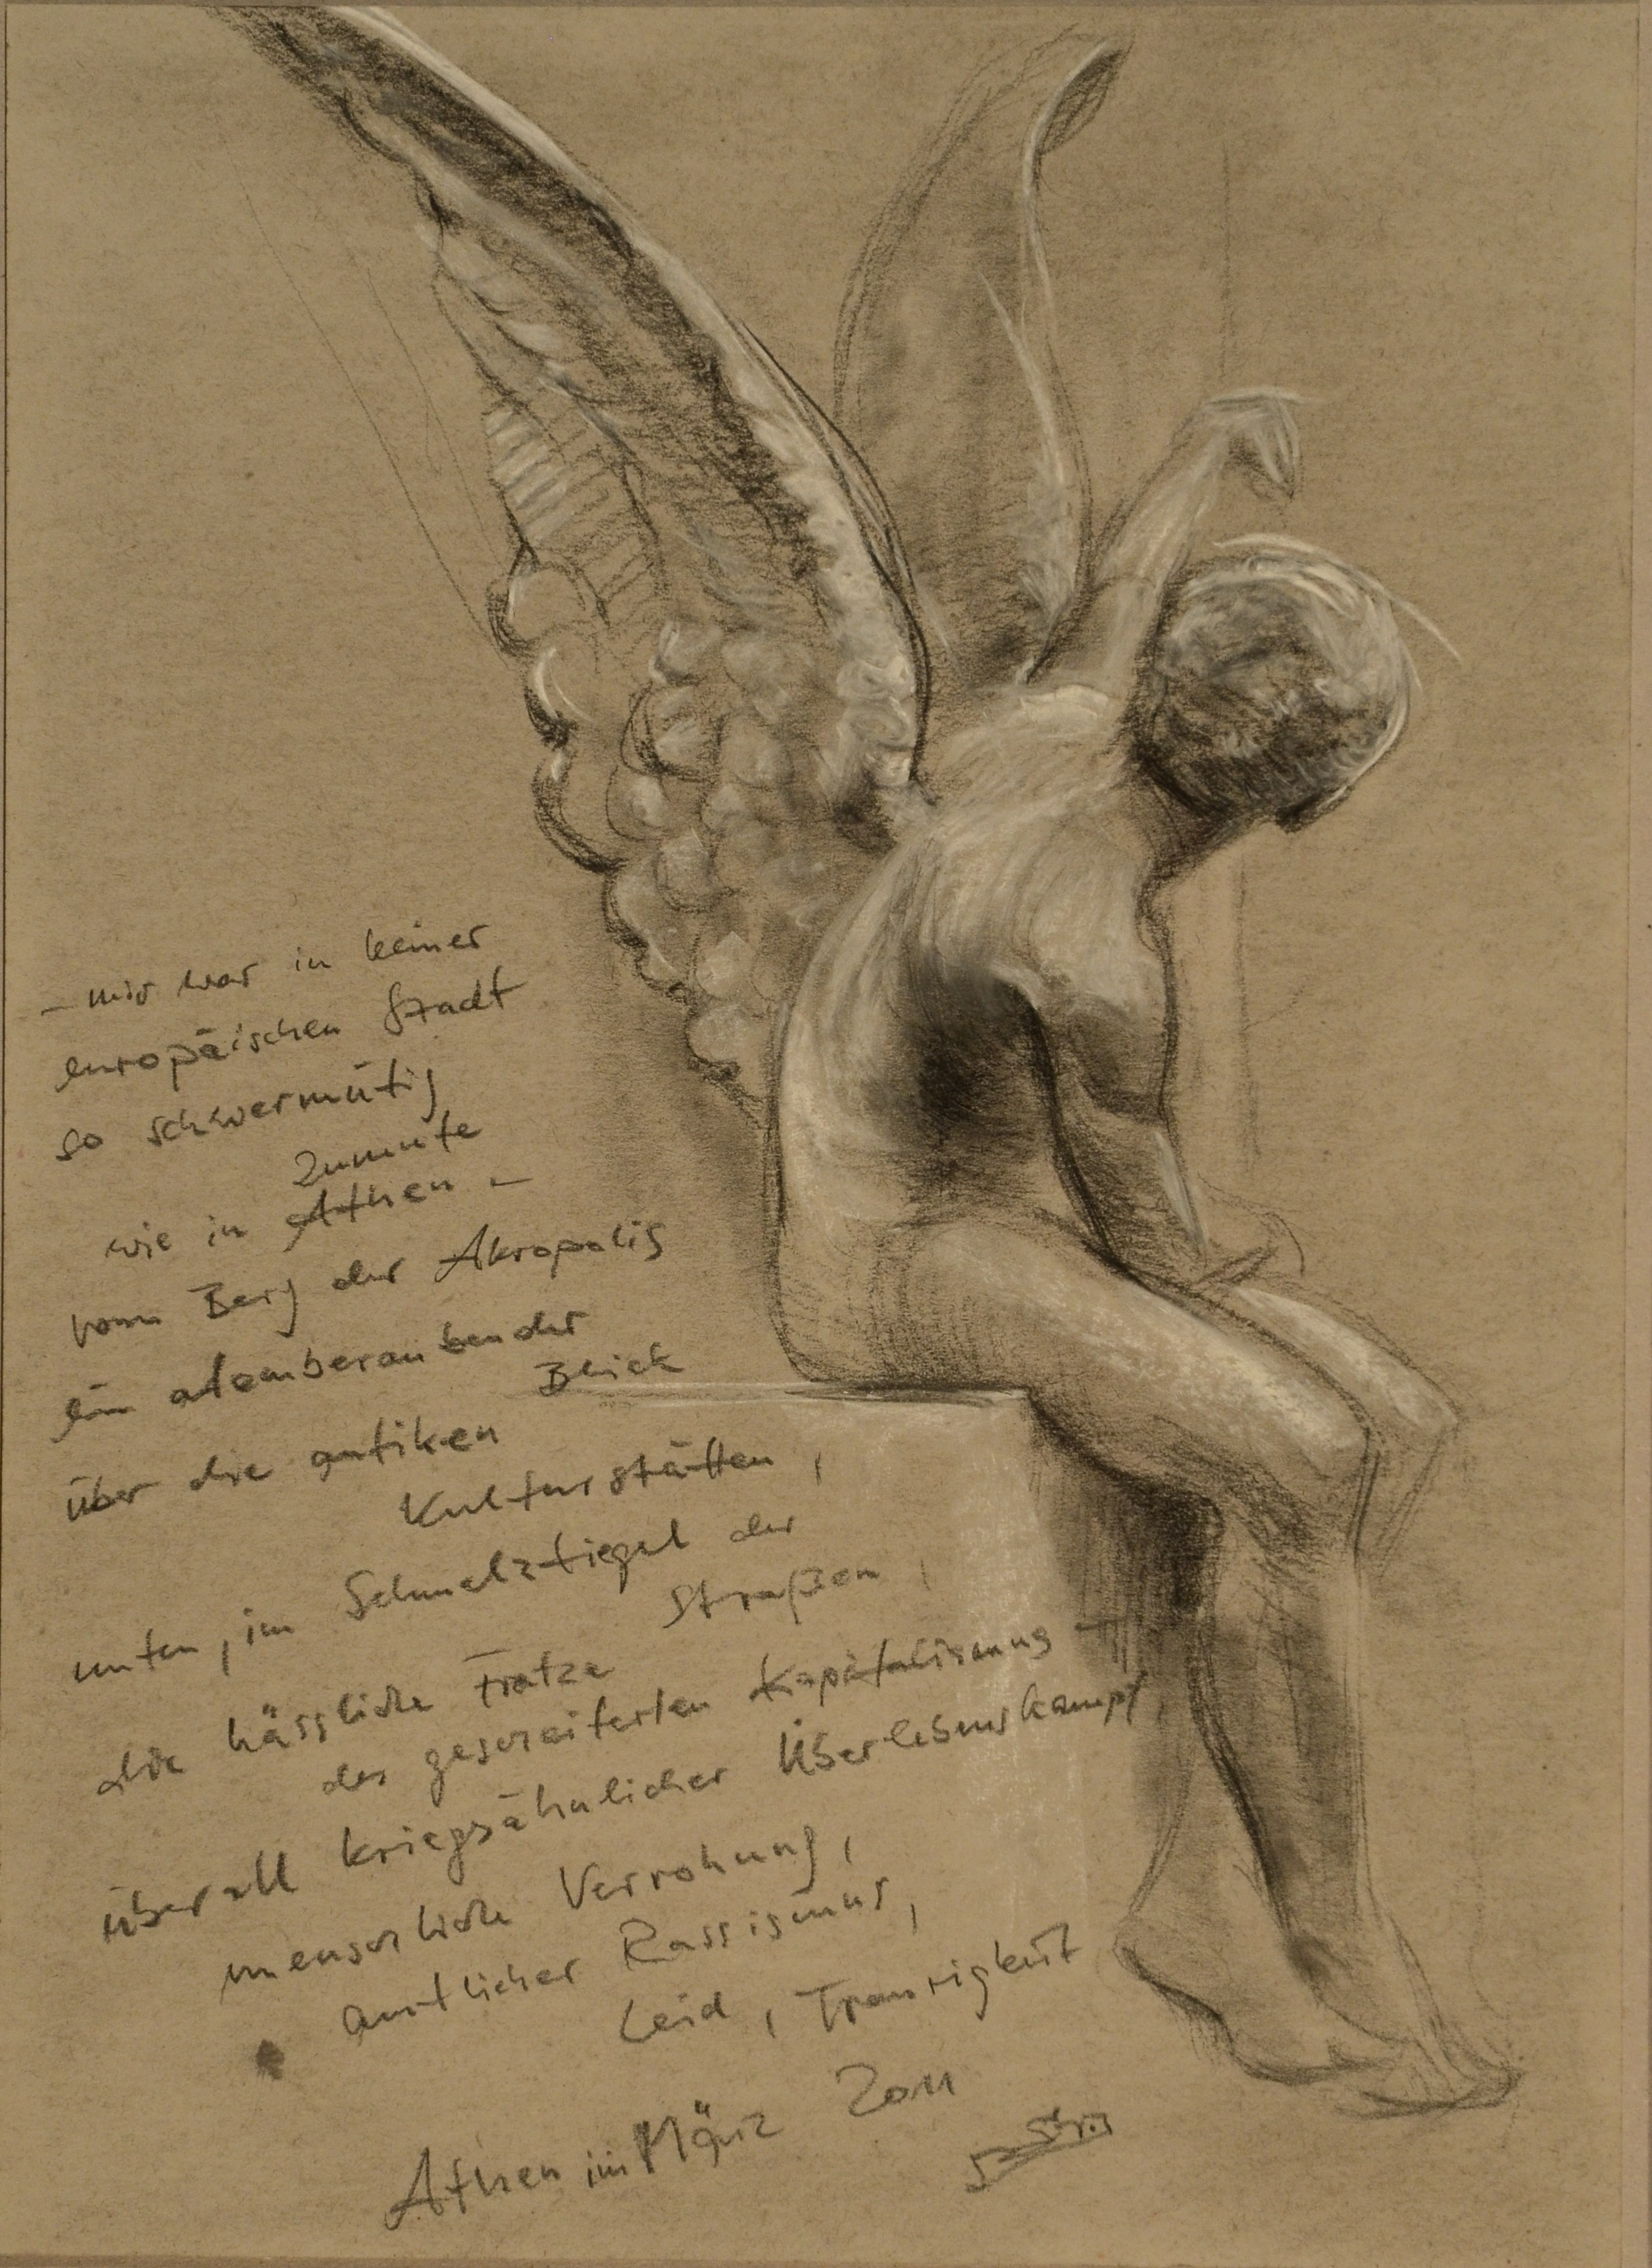 – mir war in keiner
europäischen Stadt
so schwermütig
zumute
wie in Athen –
vom Berg der Akropolis
ein atemberaubender
Blick
über die antiken
Kulturstätten,
unten, im Schmelztiegel der
Straßen,
die hässliche Fratze
des gescheiterten Kapitalismus –
überall kriegsähnlicher Überlebenskampf,
menschliche Verrohung,
amtlicher Rassismus,
Leid, Traurigkeit
Athen im März 2011